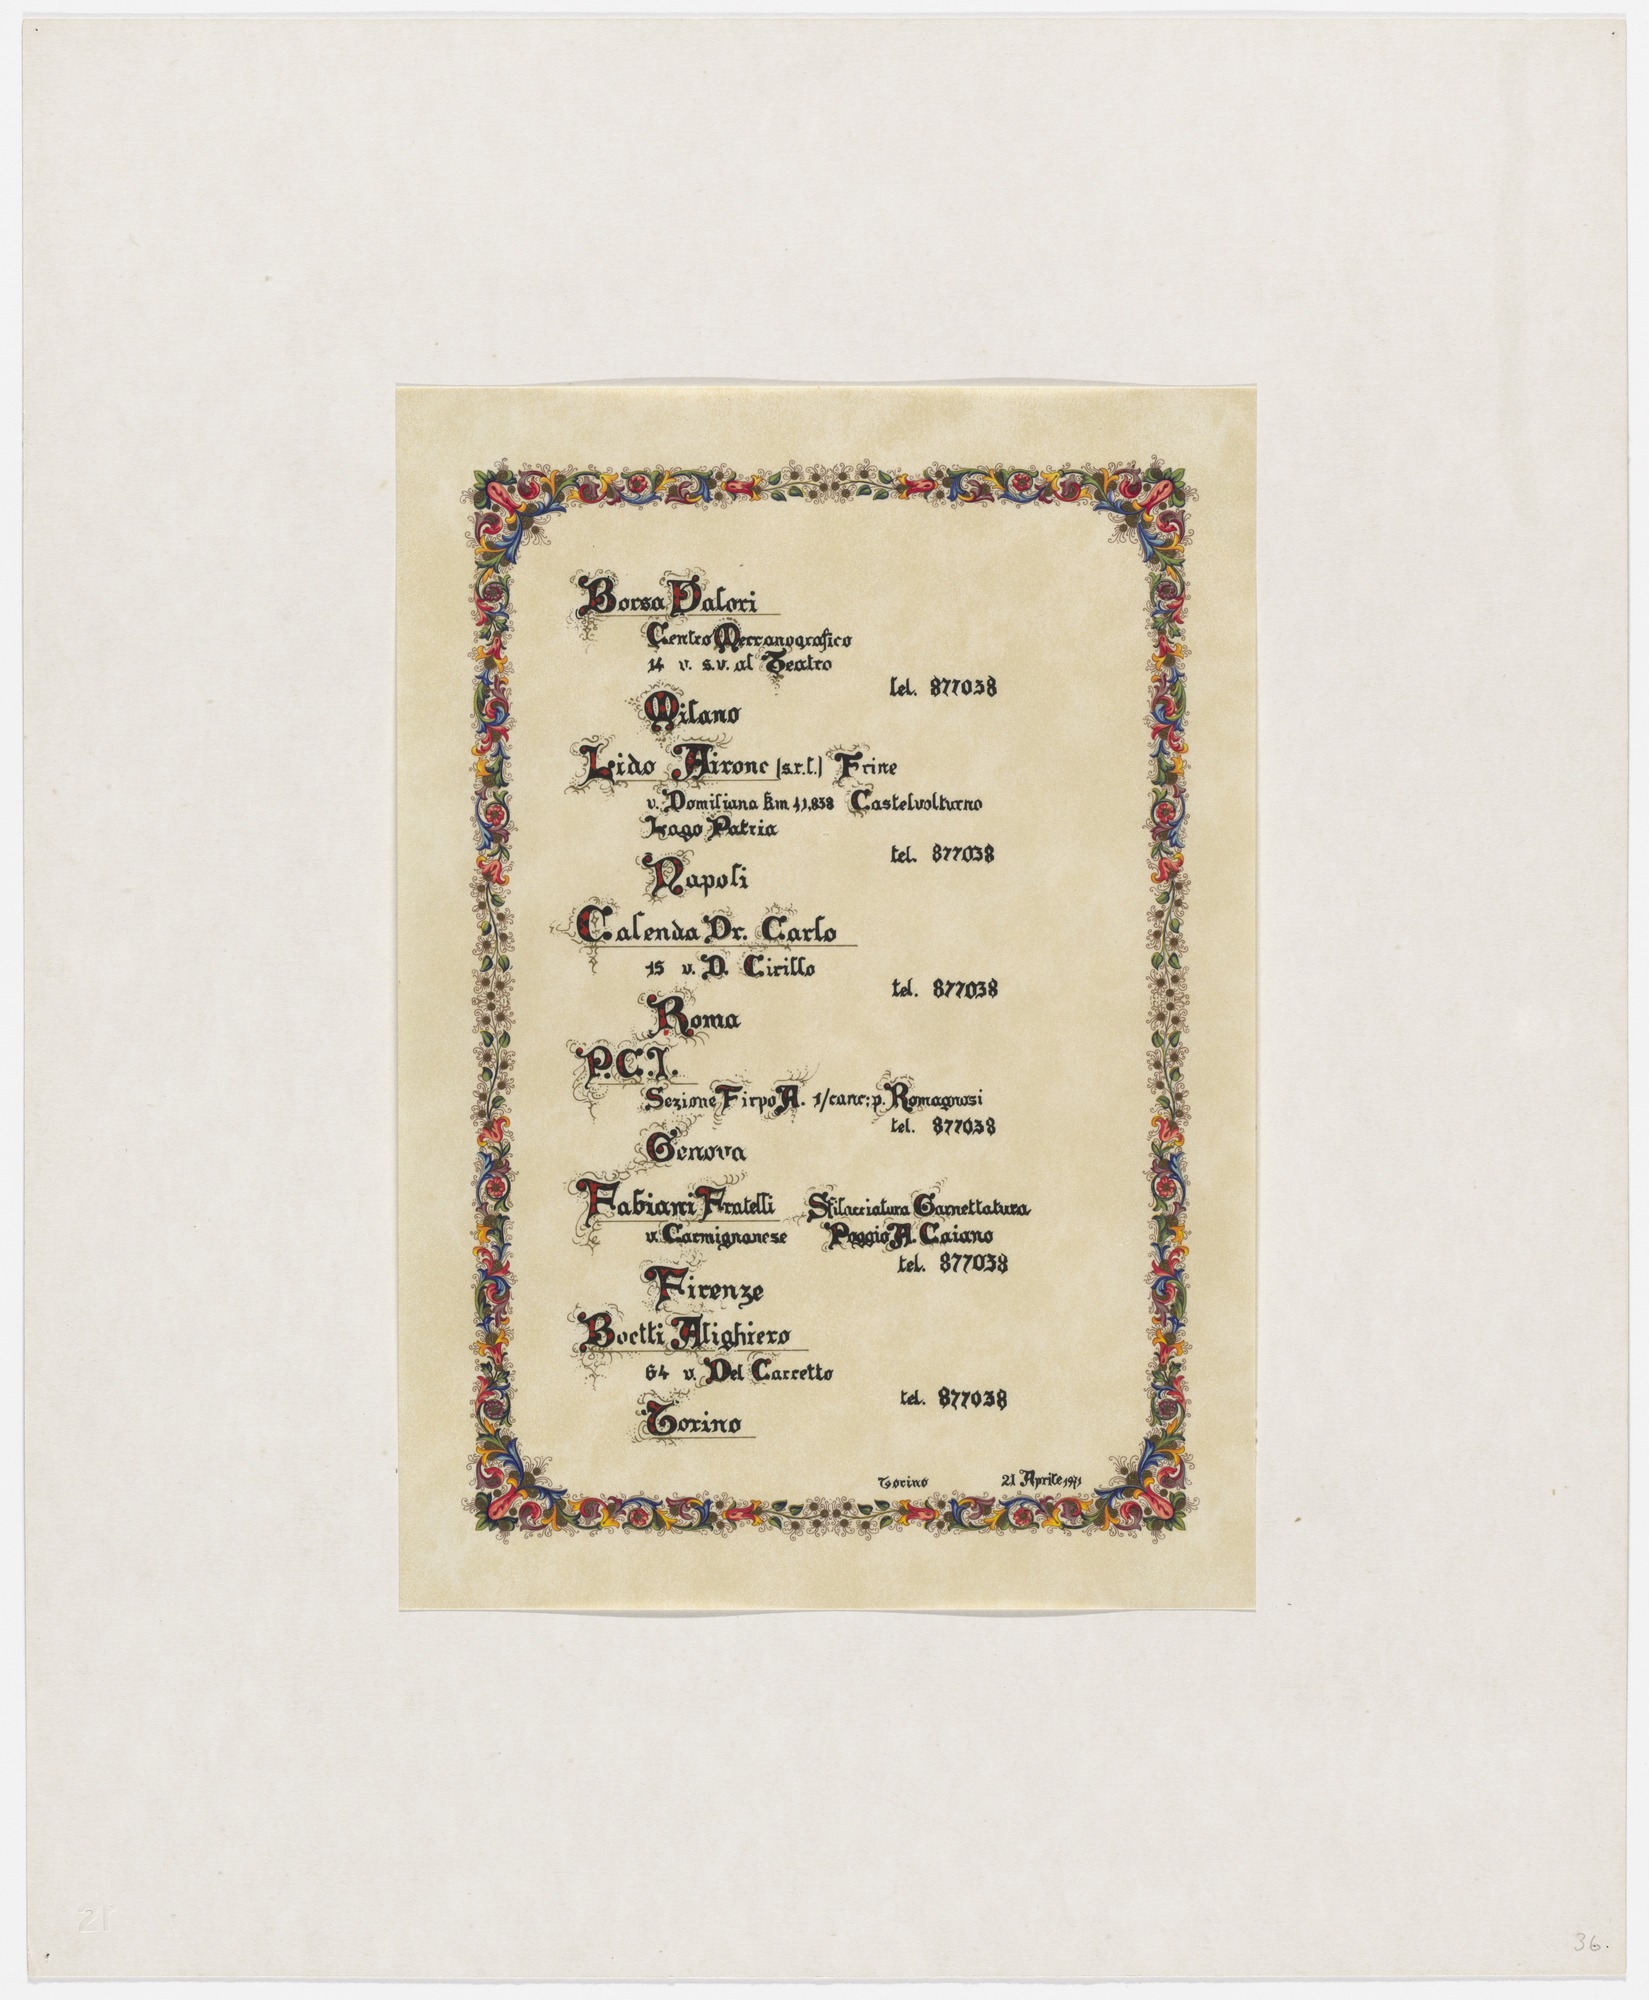 Borsa Valori
Centro Meccanografico
14 v. s.v. al Teatro
tel. 877038
Milano
Lido Airone (s.r.l.) Frine
v. Domiliana km 41,838 Castelvolturno
Lago Patria
tel. 877038
Napoli
Calenda Dr. Carlo
15 v. D. Cirillo
tel. 877038
Roma
P.C.I.
Sezione Firpo A. 1/canc; p. Romagnosi
tel. 877038
Genova
Fabiani Fratelli Sfilacciatura Garnettatura
v. Carmignanese Poggio A. Caiano
tel. 877038
Firenze
Boetti Alighiero
64 v. Del Carretto
tel. 877038
Torino
Torino 21 Aprile 1971
21
36.